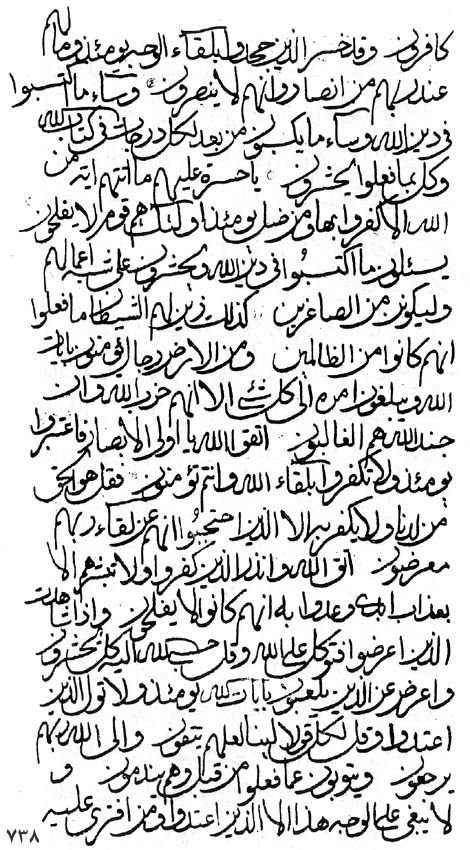 كافرون وقد خسر الذين جحدوا بلقاء الوجه يومئذ وما لهم
عند ربهم من انصار وانهم لا ينصرون وساء ما اكتسبوا
في دين الله وساء ما يكسبون من بعد لكل درجات في كتاب الله
وكل بما فعلوا يحشرون يا حسرة عليهم ما اتتهم اية من
الله الا كفروا بها ومن ضل يومئذ اولئك هم قوم لا يفلحون
يسئلون ما اكتسبوا في دين الله ويحشرون على شبه اعمالهم
وليكونن من الصاغرين كذلك زين لهم الشيطان ما فعلوا
انهم كانوا من الظالمين ومن الارض رجال يؤمنون بايات
الله ويبلغون امره الى كل شئ الا انهم حزب الله وان
جند الله هم الغالبون اتقوا الله يا اولي الابصار فاعتبروا
يومئذ ولا تكفروا بلقاء الله وانتم تؤمنون فقل هو الحق
من لدنا ولا يكفر به الا الذين احتجبوا انهم عن لقاء ربهم
معرضون اتق الله وانذر الذين كفروا ولا تبشرهم الا
بعذاب وعدوا به انهم كانوا لا يفلحون واذا شاهدت
الذين اعرضوا فتوكل على الله وقل حسبي الله اليه كل يحشرون
واعرض عن الذين يلعبون بايات الله يومئذ ولا تول الذين
اعتدوا وقل لكل قولا لينا لعلهم يتقون والى الله ربهم
يرجعون ويتوبون عما فعلوا من قبل وهم يندمون و
لا يبغى على الوجه هذا الا الذين اعتدوا ومن افترى عليه
٧٣٨